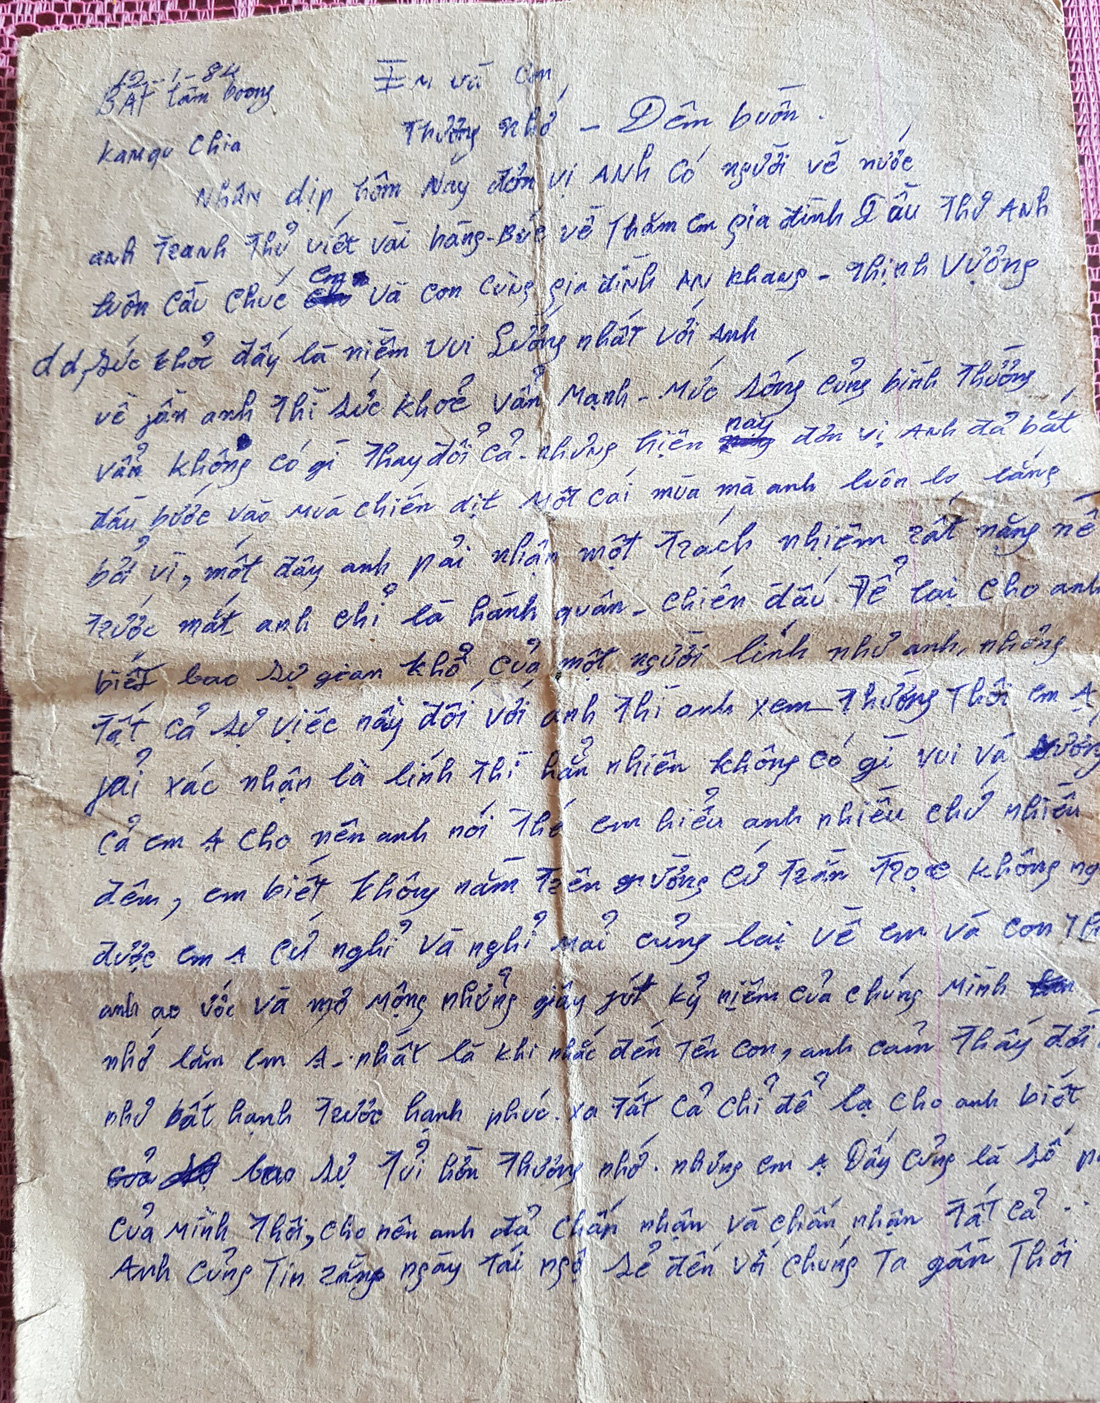 12-1-84
BÁT tầm boong
Kampu Chia
Em và con,
Thương nhớ - Đêm buồn.
Nhân dịp hôm Nay đơn vị ANh có người về nước
anh Tranh Thủ viết vài hàng-Bức về Thăm em gia đình Đầu Thư ANh
luôn cầu chúc em và con cùng gia đình AN khang - Thịnh Vượng
dd, sức khỏe đấy là niềm vui Sướng nhất với Anh
về fần anh Thì sức khoẻ vẩn Mạnh - Mức sống củng bình Thường
vẩn không có gì Thay đổi cả - nhưng hiện nay đơn vị Anh đả bắt
đầu bước vào Mùa chiến dịt Một cái mùa mà anh luôn lo lắng
bởi vì, một đây anh pải nhận một Trách nhiệm rất nặng nề
Trước mắt anh chỉ là hành quân - chiến đấu Để lại cho anh
biết bao sự gian khổ của một người lính như anh, nhưng
Tất cả sự việc nầy đối với anh Thì anh xem Thường Thôi em Ạ
fải xác nhận là lính Thì hẳn nhiên không có gì vui và sướng
cả em Ạ cho nên anh nói Thế em hiểu anh nhiều chứ nhiều
đêm, em biết không nằm Trên giường cứ Trằn Trọc không ng
được em Ạ cứ nghỉ và nghỉ Mải củng lại về em và con Th
anh ao ước và mơ Mộng những giây fút kỷ niệm của chúng Mình
nhớ lắm em Ạ - nhất là khi nhắc đến Tên con, anh cảm Thấy đời
như bất hạnh Trước hạnh phúc. xa Tất cả chỉ để lại cho anh biết
bao sự Tủi hờn Thương nhớ. nhưng em Ạ Đấy củng là số p
của Mình Thôi, cho nên anh đả chấp nhận và chấp nhận Tất cả..
Anh củng Tin rằng ngày tái ngộ sẻ đến với chúng Ta gần Thôi